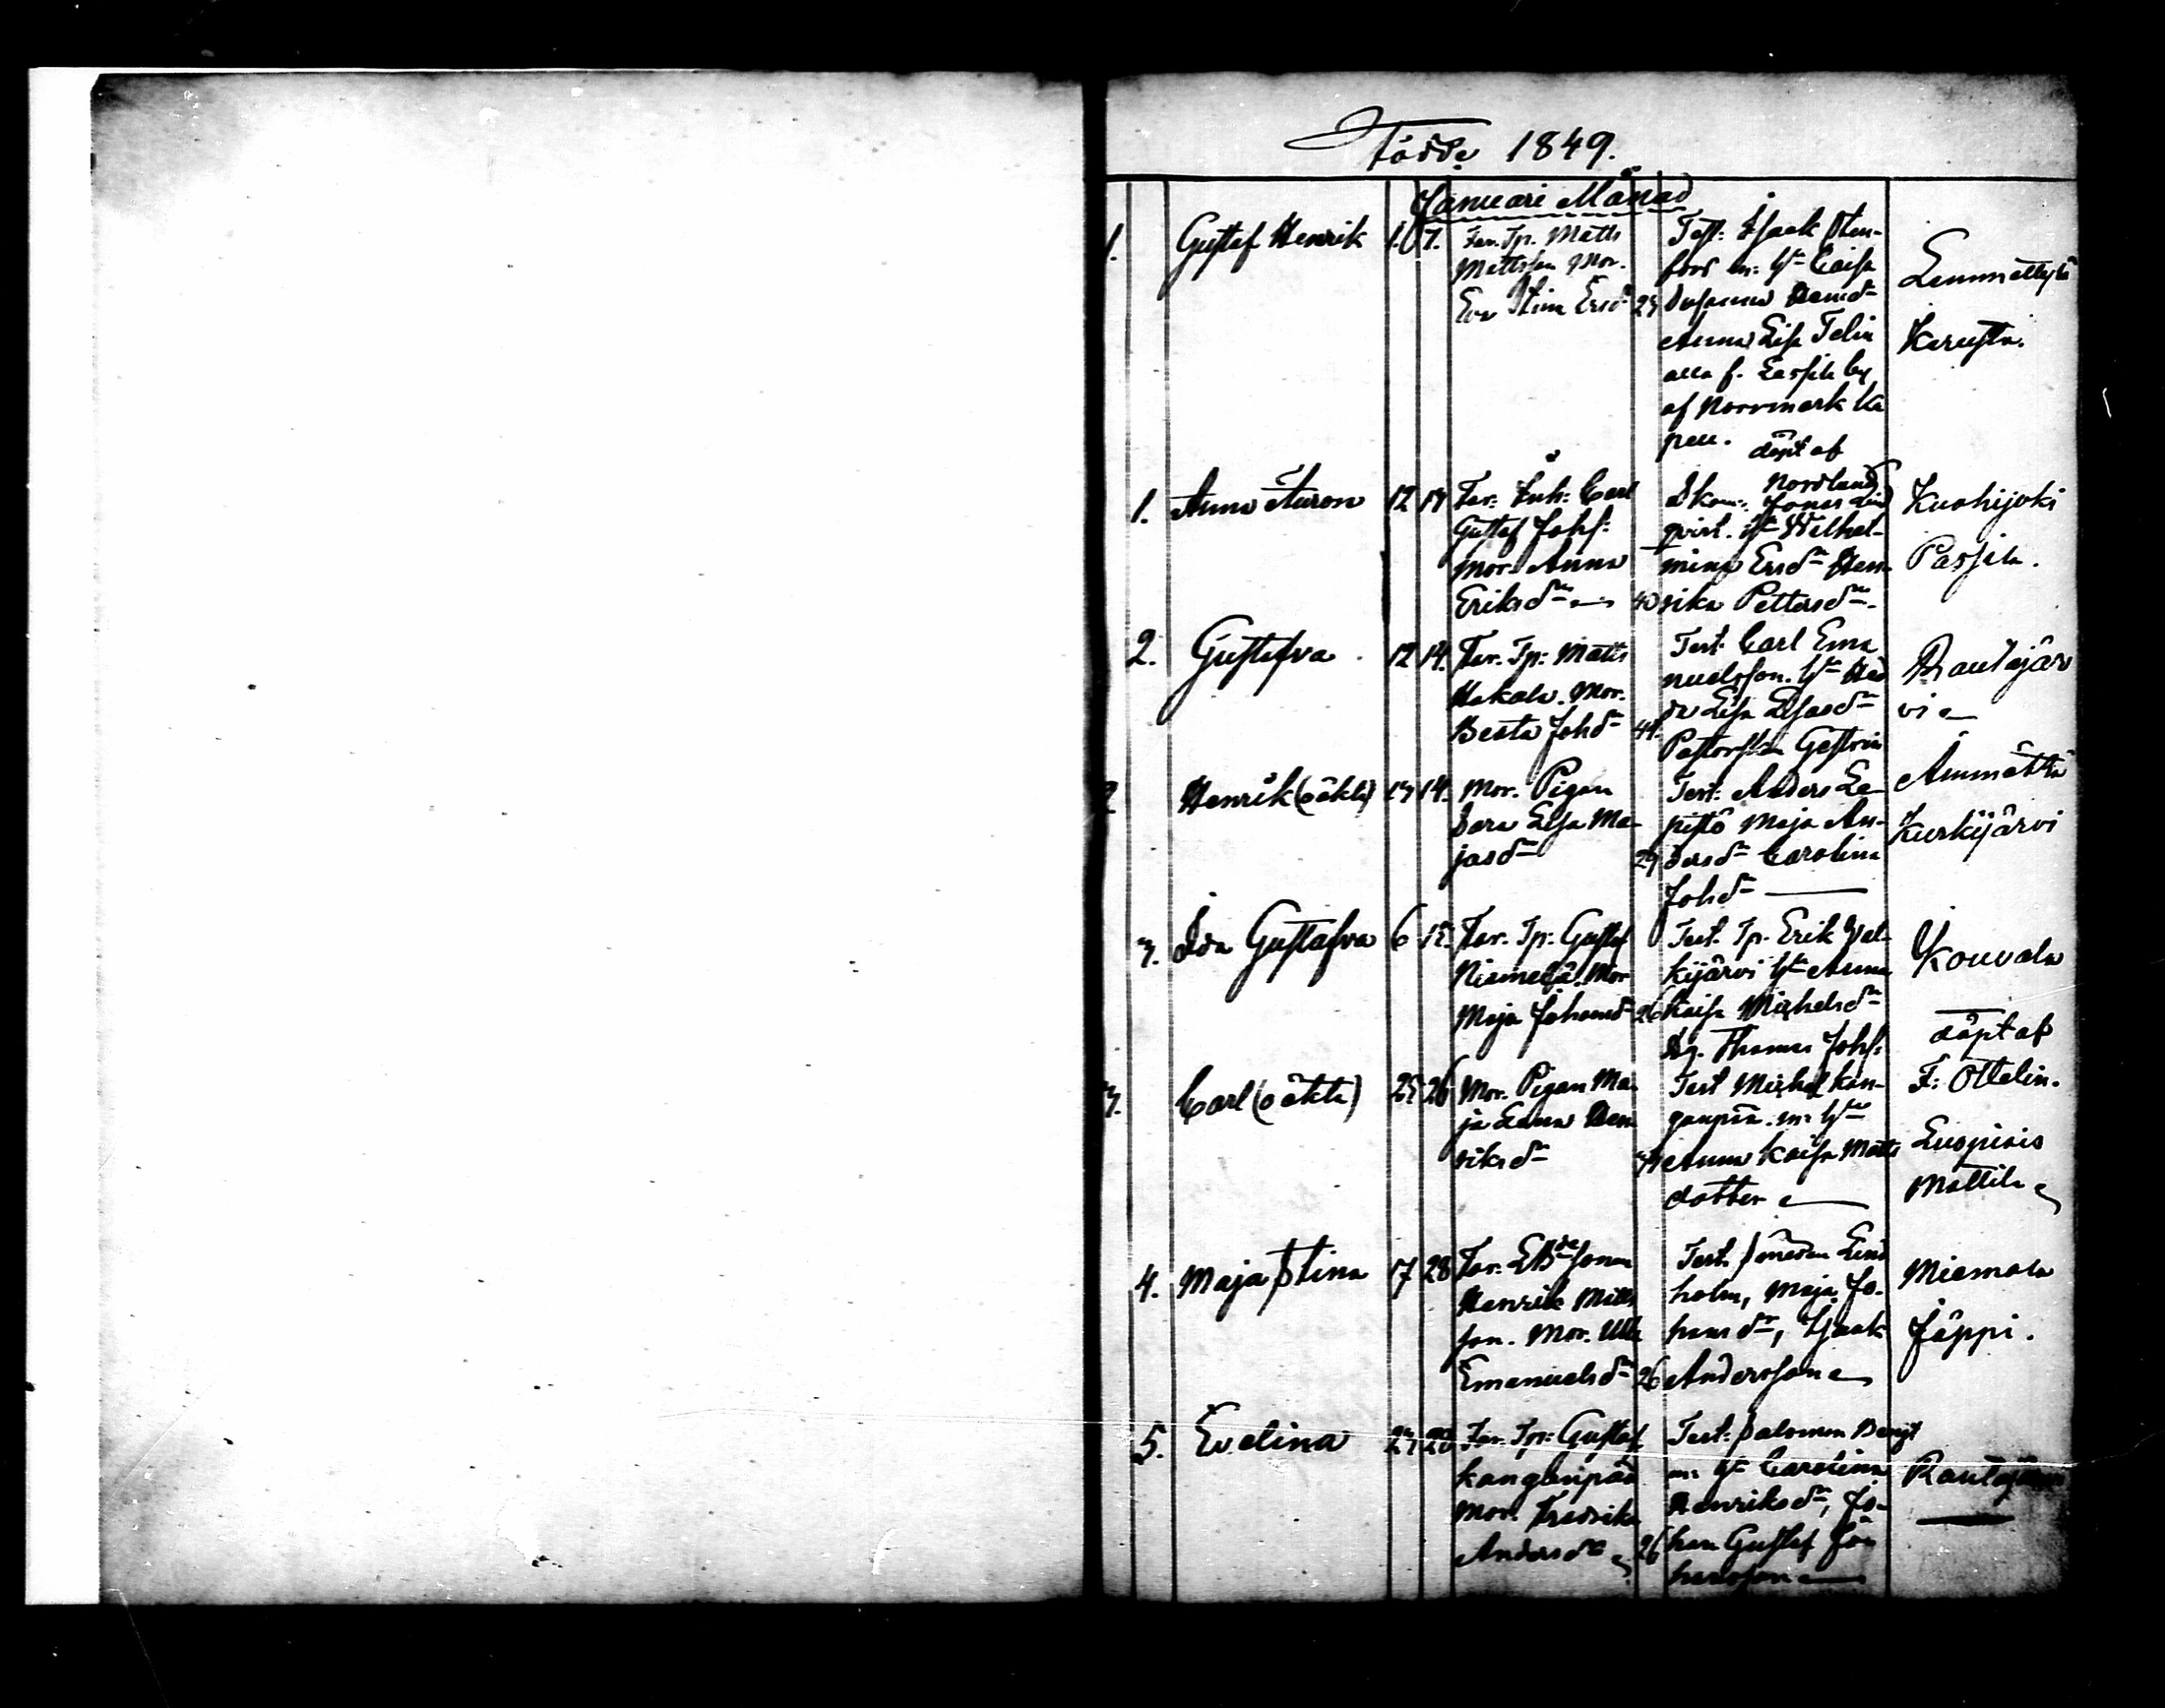 Födde 1849.
Januari Månad
1. Gustaf Henrik 1. 7. Far. Tp. Matts
Mattsson Mor.
Eva Stina Ersdr
Test: Isaak Sten-
fors m. Hu Caisa
Susanna Henrdr
Anna Lisa Telin
alla f. Lassila by
af Norrmark Ka
pell.
Lemmettylä
Kerusta.
1. Anna Aurora 12 14 Far: Inh: Carl
Gustaf Johs:
Mor. Anna
Eriksdr 40
döpt af
Nordlund
Skom: Jonas Lind
qvist. Hu Wilhel-
mina Ersdr Hen
rika Pettersdr
Kuohijoki
Passila.
2. Gustafva 12 14. Far. Tp: Matts
Hakala. Mor.
Beata Johdr 41.
Test: Carl Ema
nuelsson. Hu Hed
da Lisa Eljasdr
Pastorskan Gestrin
Rautajär
vi
2 Henrik (oäkta) 13 14. Mor. Pigan
Sara Lisa Ma-
jasdr 29
Test: Anders Le
pistö Maja An-
dersdr Carolina
Johdr
Ämmättä
Kurkijärvi
3. Ida Gustafva 6 15. Far. Tp: Gustaf
Niemeljä. Mor
Maja Johansdr 26
Test. Tp. Erik Wal-
kijärvi Hu Anna
Kaisa Michelsdr
Dg. Thomas Johs:
Kouvala
3. Carl (oäkta) 25 26 Mor. Pigan Ma
ja Leena Hen
riksdr
Test Michel Kan-
ganpää. m. Hu
Anna Kaisa Matts
dotter
döpt af
F: Ottelin.
Luopiois
Mattila
4. Maja Stina 17 28 Far. Sonen
Henrik Matts
son. Mor. Ulla
Emanuelsdr 26
Test. Smeden Lind
holm, Maja Jo-
hansdr, Isaak
Andersson
Miemola
Jäppi.
5. Evelina 23 28 Far. Tpr: Gustaf
Kanganpää
Mor. Fredrika
Andersdr 26
Test: Salomon Bengt
m. Hu Carolina
Henriksdr, Jo-
han Gustaf Jo
hansson
Rautajärvi